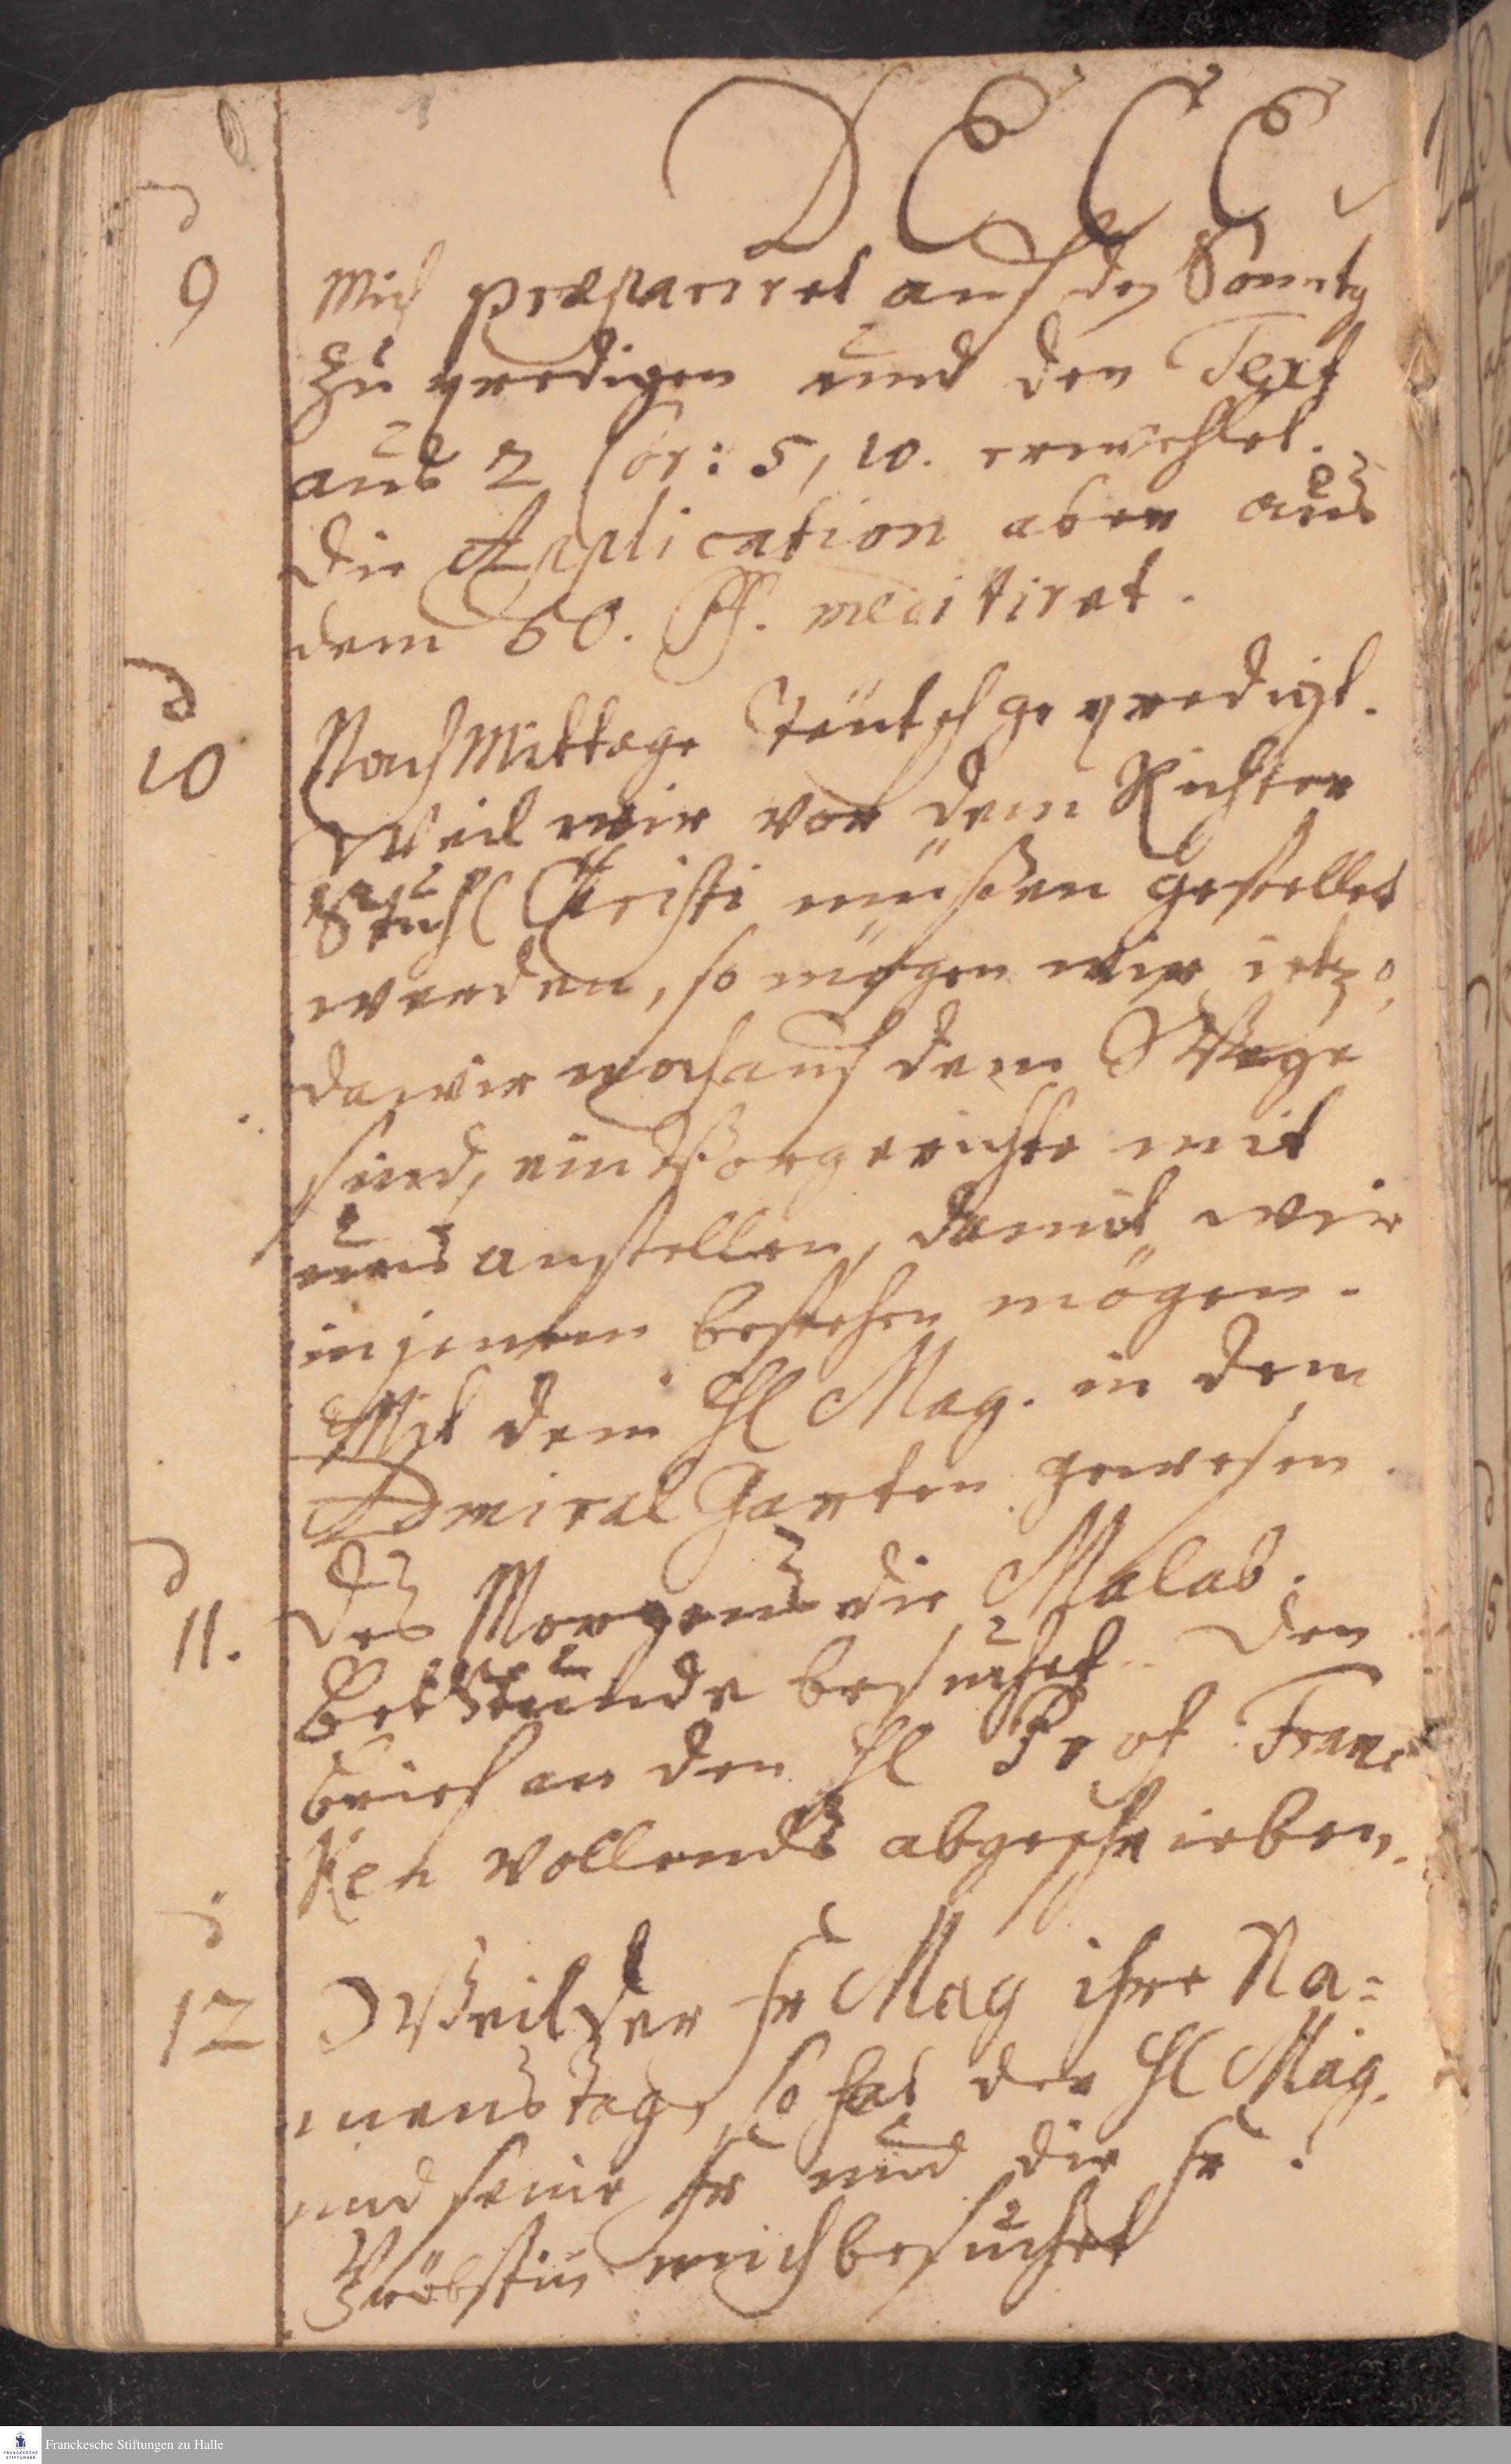 DECE
9 Mich præpariret auf den Sonntg
zu predigen und den Text
aus 2 Cor: 5, 10. erwehlet.
Die Application aber aus
dem 50. Ps. meditiret.
10 Nach Mittage Teütsch geprediget.
Weil wir vor dem Richter
Stuhl Christi müßen gestellet
werden, so mögen wir ietzo,
da wir noch auf dem Wege
sind, ein Vorgerichte mit
uns anstellen, damit wir
in jenem bestehen mögen.
Mit dem Hl Mag. in dem
Admiral Garten gewesen.
11. Des Morgens die Malab.
BetStunde besuchet. Den
brief an den Hl Prof Franc
Ken vollends abgeschrieben.
12 Weil der Fr Mag ihre Na=
mens Tag, so hat der Hl Mag.
und seine Fr und die Fr
Pröbstin mich besuchet
Franckesche Stiftungen zu Halle